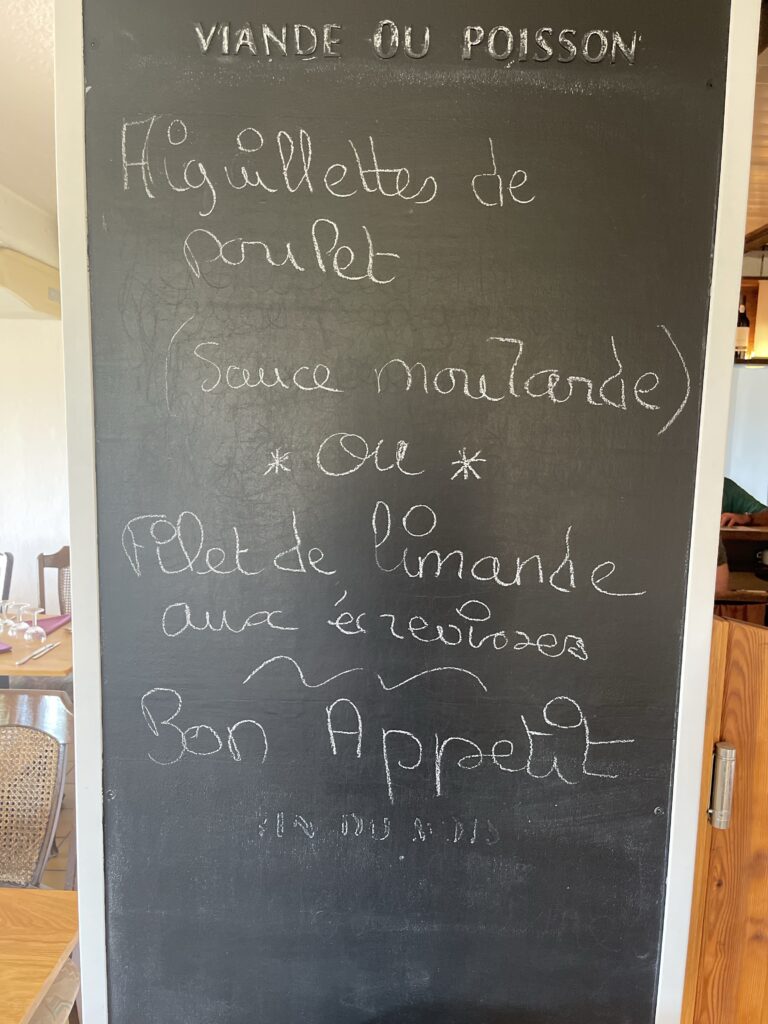 VIANDE OU POISSON
Aiguillettes de
poulet
(Sauce moutarde)
* ou *
Filet de limande
aux écrevisses
Bon Appetit